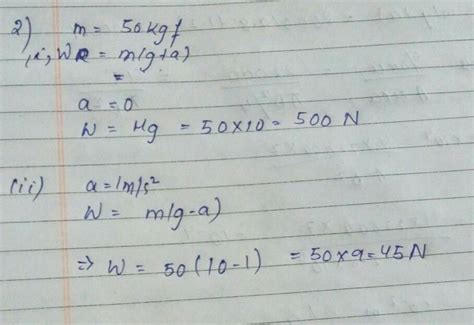 2) m = 50kgf
(i) WR = m(g+a)
=
a = 0
W = Mg = 50×10 = 500 N
(ii) a = 1m/s²
W = m(g-a)
⇒ W = 50(10-1) = 50×9 = 45N